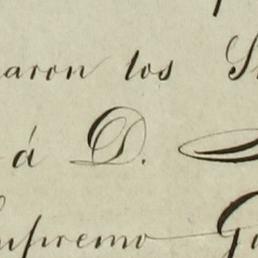 aron los
á D.
upremo